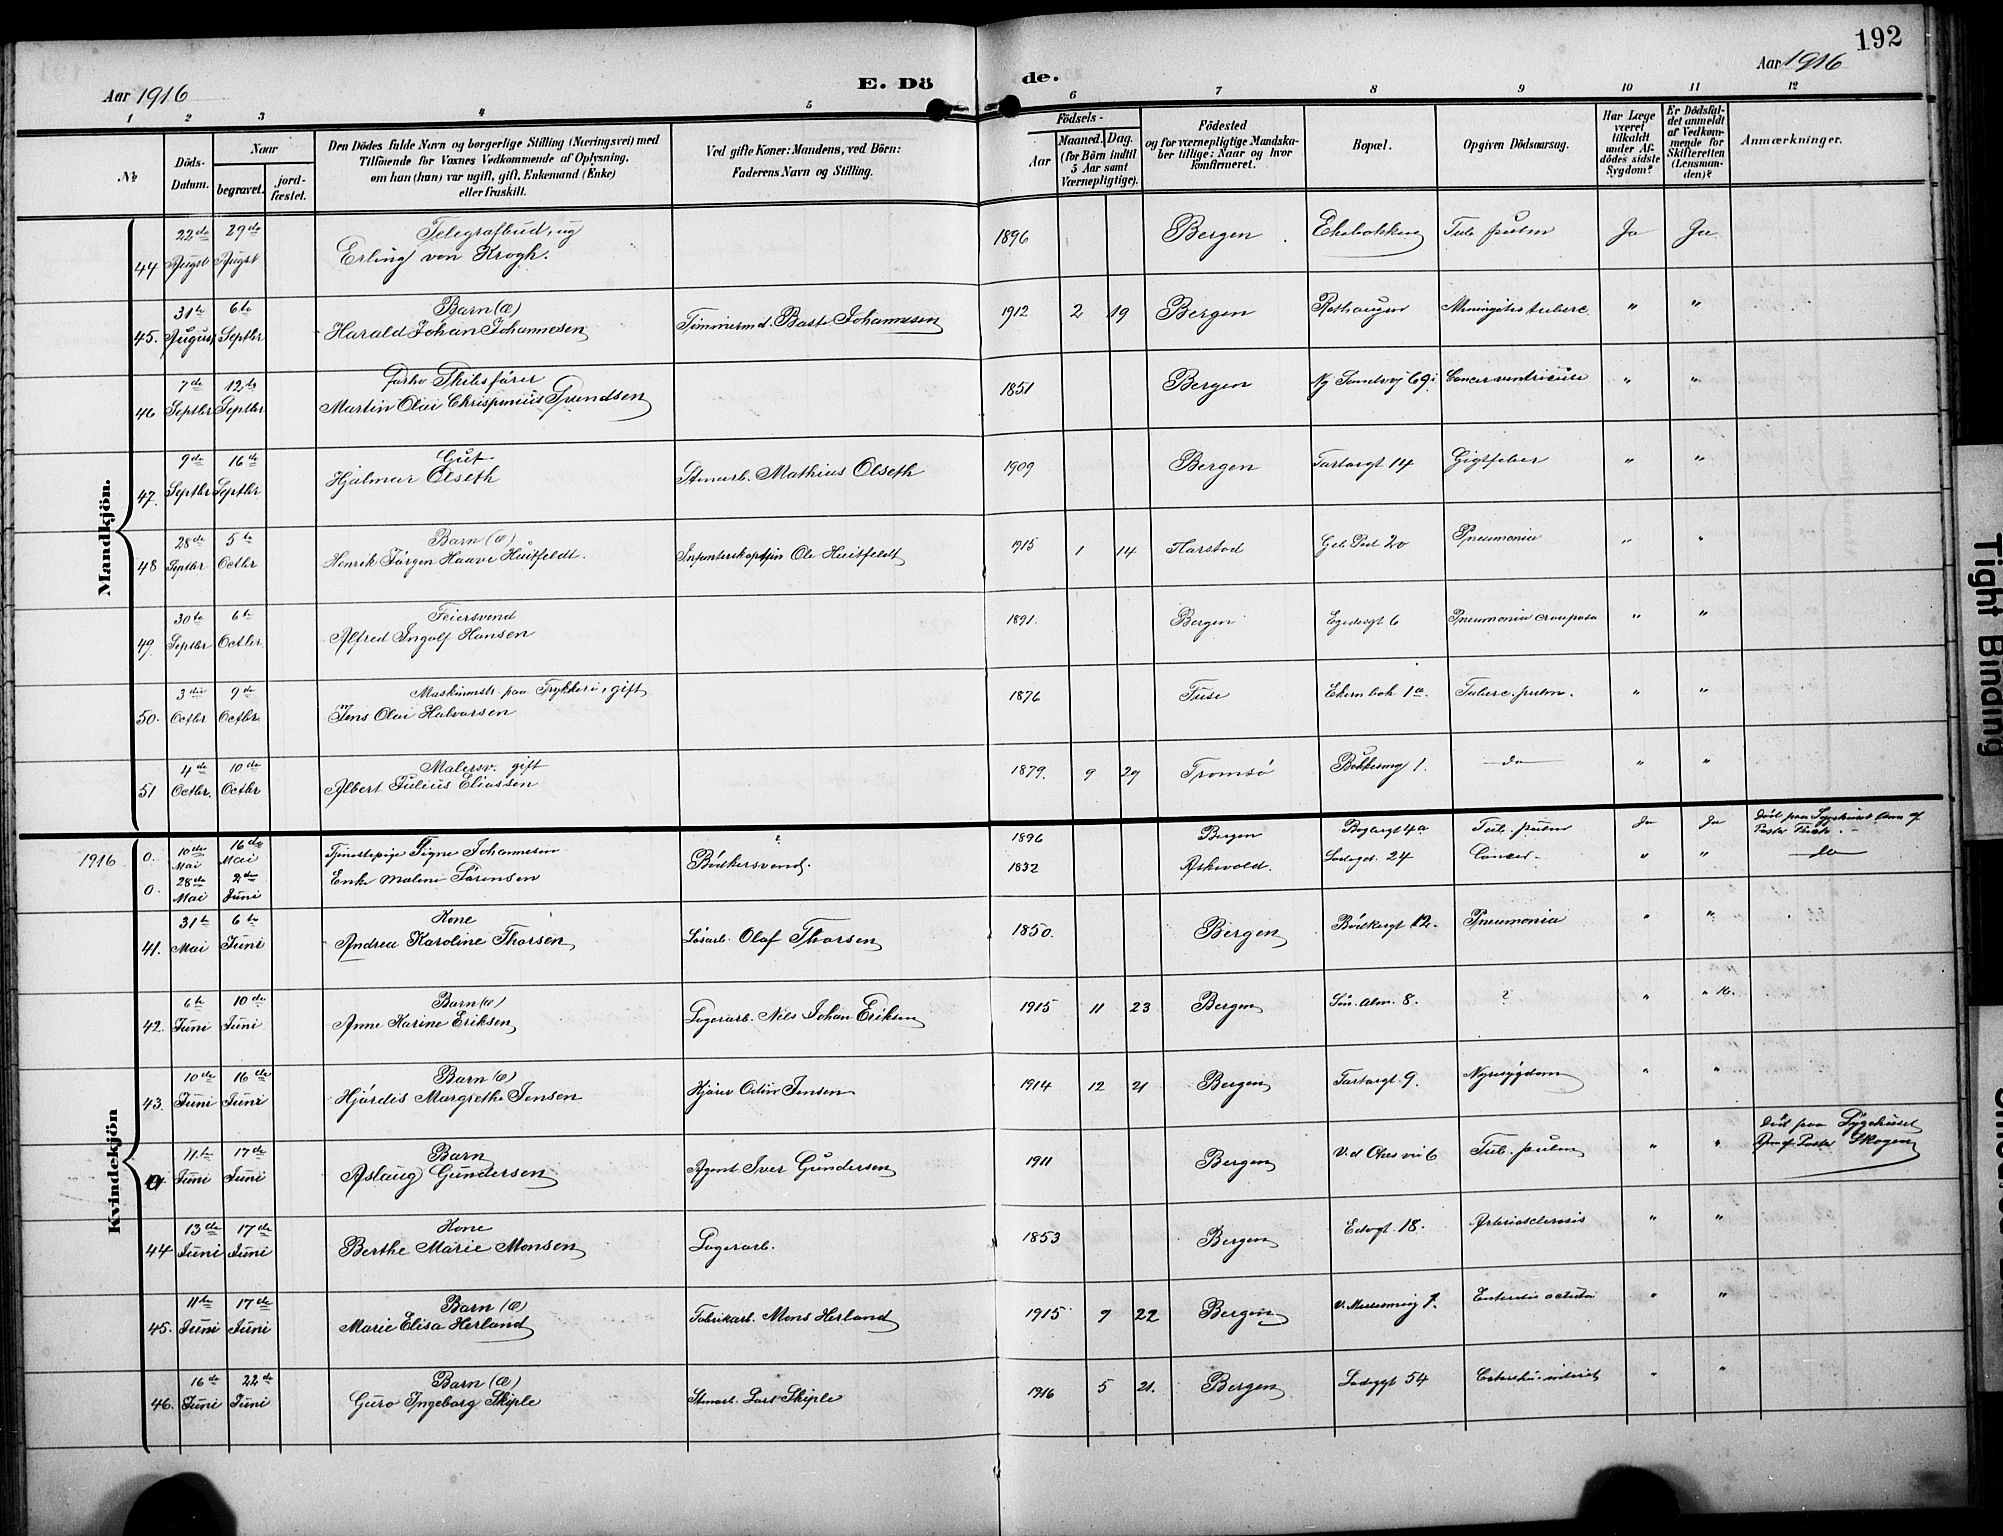 192
Aar 1916
E. Dö
de.
Aar 1916
1 2 3 4 5 6 7 8 9 10 11 12
№
Döds-
Datum.
Naar
begravet.
jord-
fæstet.
Den Dödes fulde Navn og borgerlige Stilling (Næringsvei) med
Tilföiende for Voxnes Vedkommende af Oplysning,
om han (hun) var ugift, gift, Enkemand (Enke)
eller fraskilt.
Ved gifte Koner: Mandens, ved Börn:
Faderens Navn og Stilling.
Födsels-
Aar
Maaned. Dag.
(for Börn indtil
5 Aar samt
Værnepligtige).
Födested
og for værnepligtige Mandska-
ber tillige: Naar og hvor
konfirmeret.
Bopæl.
Opgiven Dödsaarsag.
Har Læge
været
tilkaldt
under Af-
dödes sidste
Sygdom?
Er Dödsfal-
det anmeldt
af Vedkom-
mende for
Skifteretten
(Lensman-
den)?
Anmærkninger.
Mandkjön.
22de 29de Telegrafbud, ug
44 Augst Augst Erling von Krogh. 1896 Bergen Tub pulm Ja Ja
31te 6te Barn (æ)
45. August Septbr Harald Johan Johannesen Tömmermd. Baste Johannesen 1912 2 19 Bergen Rothaugen Meningitis tuberc " "
7de 12te
46 Septbr Septbr Martin Olai Chrispinius 1851 Bergen Cancer ventriculi " "
9de 16de Gut
47. Septbr Septbr Hjalmar Olseth Stenarb. Mathias Olseth 1909 Bergen Tartargt 14 Gigtfeber " "
28de 5te Barn (æ)
48 Septbr Octbr Henrik Jörgen Haave Huitfeldt. Ole Huitfeldt 1915 1 14 Harstad 20 Pneumonia " "
30te 6te Feiersvend
49. Septbr Octbr. Alfred Ingolf Hansen 1891. Bergen Egedesgt 6 Pneumonia crouposa " "
3die 9de Maskinmstr. paa Trykkeri, gift
50. Octbr Octbr. Jens Olai Halvorsen 1876 Fuse 1a. Tuberc. pulm. " "
4de 10de Malersv. gift
51 Octbr. Octbr Albert Julius Eliassen 1879. 9 29 Tromsö 1. do " "
Kvindekjön
1916 0. 10de Mai 16de Mai Tjenestepige Signe Johannesen ? 1896 Bergen 4a Tub. pulm Ja Ja Död paa
0. 28de Mai 2de Juni Enke Malene Sörensen Bödkersvend. 1832 Askevold. Ladegd. 24 Cancer. " " do
31te 6te Kone
41. Mai Juni Andrea Karoline Thorsen Lösarb. Olaf Thorsen 1850. Bergen Bödkergt 12. Pneumonia " "
6te 10de Barn (æ)
42. Juni Juni Anne Karine Eriksen Lagerarb. Nils Johan Eriksen 1915 11 23 Bergen Alm. 8. ? " "
10de 16de Barn (æ)
43. Juni Juni Hjördis Margrethe Jensen Kjörer Jensen 1914 12 21 Bergen Tartargt 9. Nyresygdom " "
11te 17de Barn
0 Juni Juni Aslaug Gundersen Agent Iver Gundersen 1911 Bergen 6 Tub. pulm " " Död paa Sygehuset
Skogen
13de 17de Kone
44 Juni Juni Berthe Marie Monsen Lagerarb. 1853 Bergen 18. Arteriosclerosis " "
11te 17de Barn (æ)
45. Juni Juni Marie Elisa Herland Fabrikarb. Mons Herland 1915 7 22 Bergen Enteritis acuta " "
16de 22de Barn (æ)
46. Juni Juni Guro Ingeborg Skiple Stenarb. Lars Skiple 1916 5 21. Bergen Ladegt 54 " "
Tight Binding